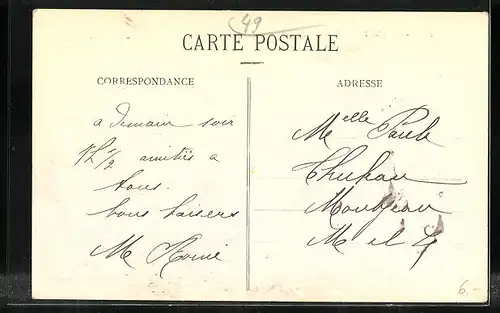 49
CARTE POSTALE
CORRESPONDANCE
a demain soir
1/2 amitiés a
tous.
bons baisers
M
ADRESSE
Melle Paule
Montjean
M et L
6.-